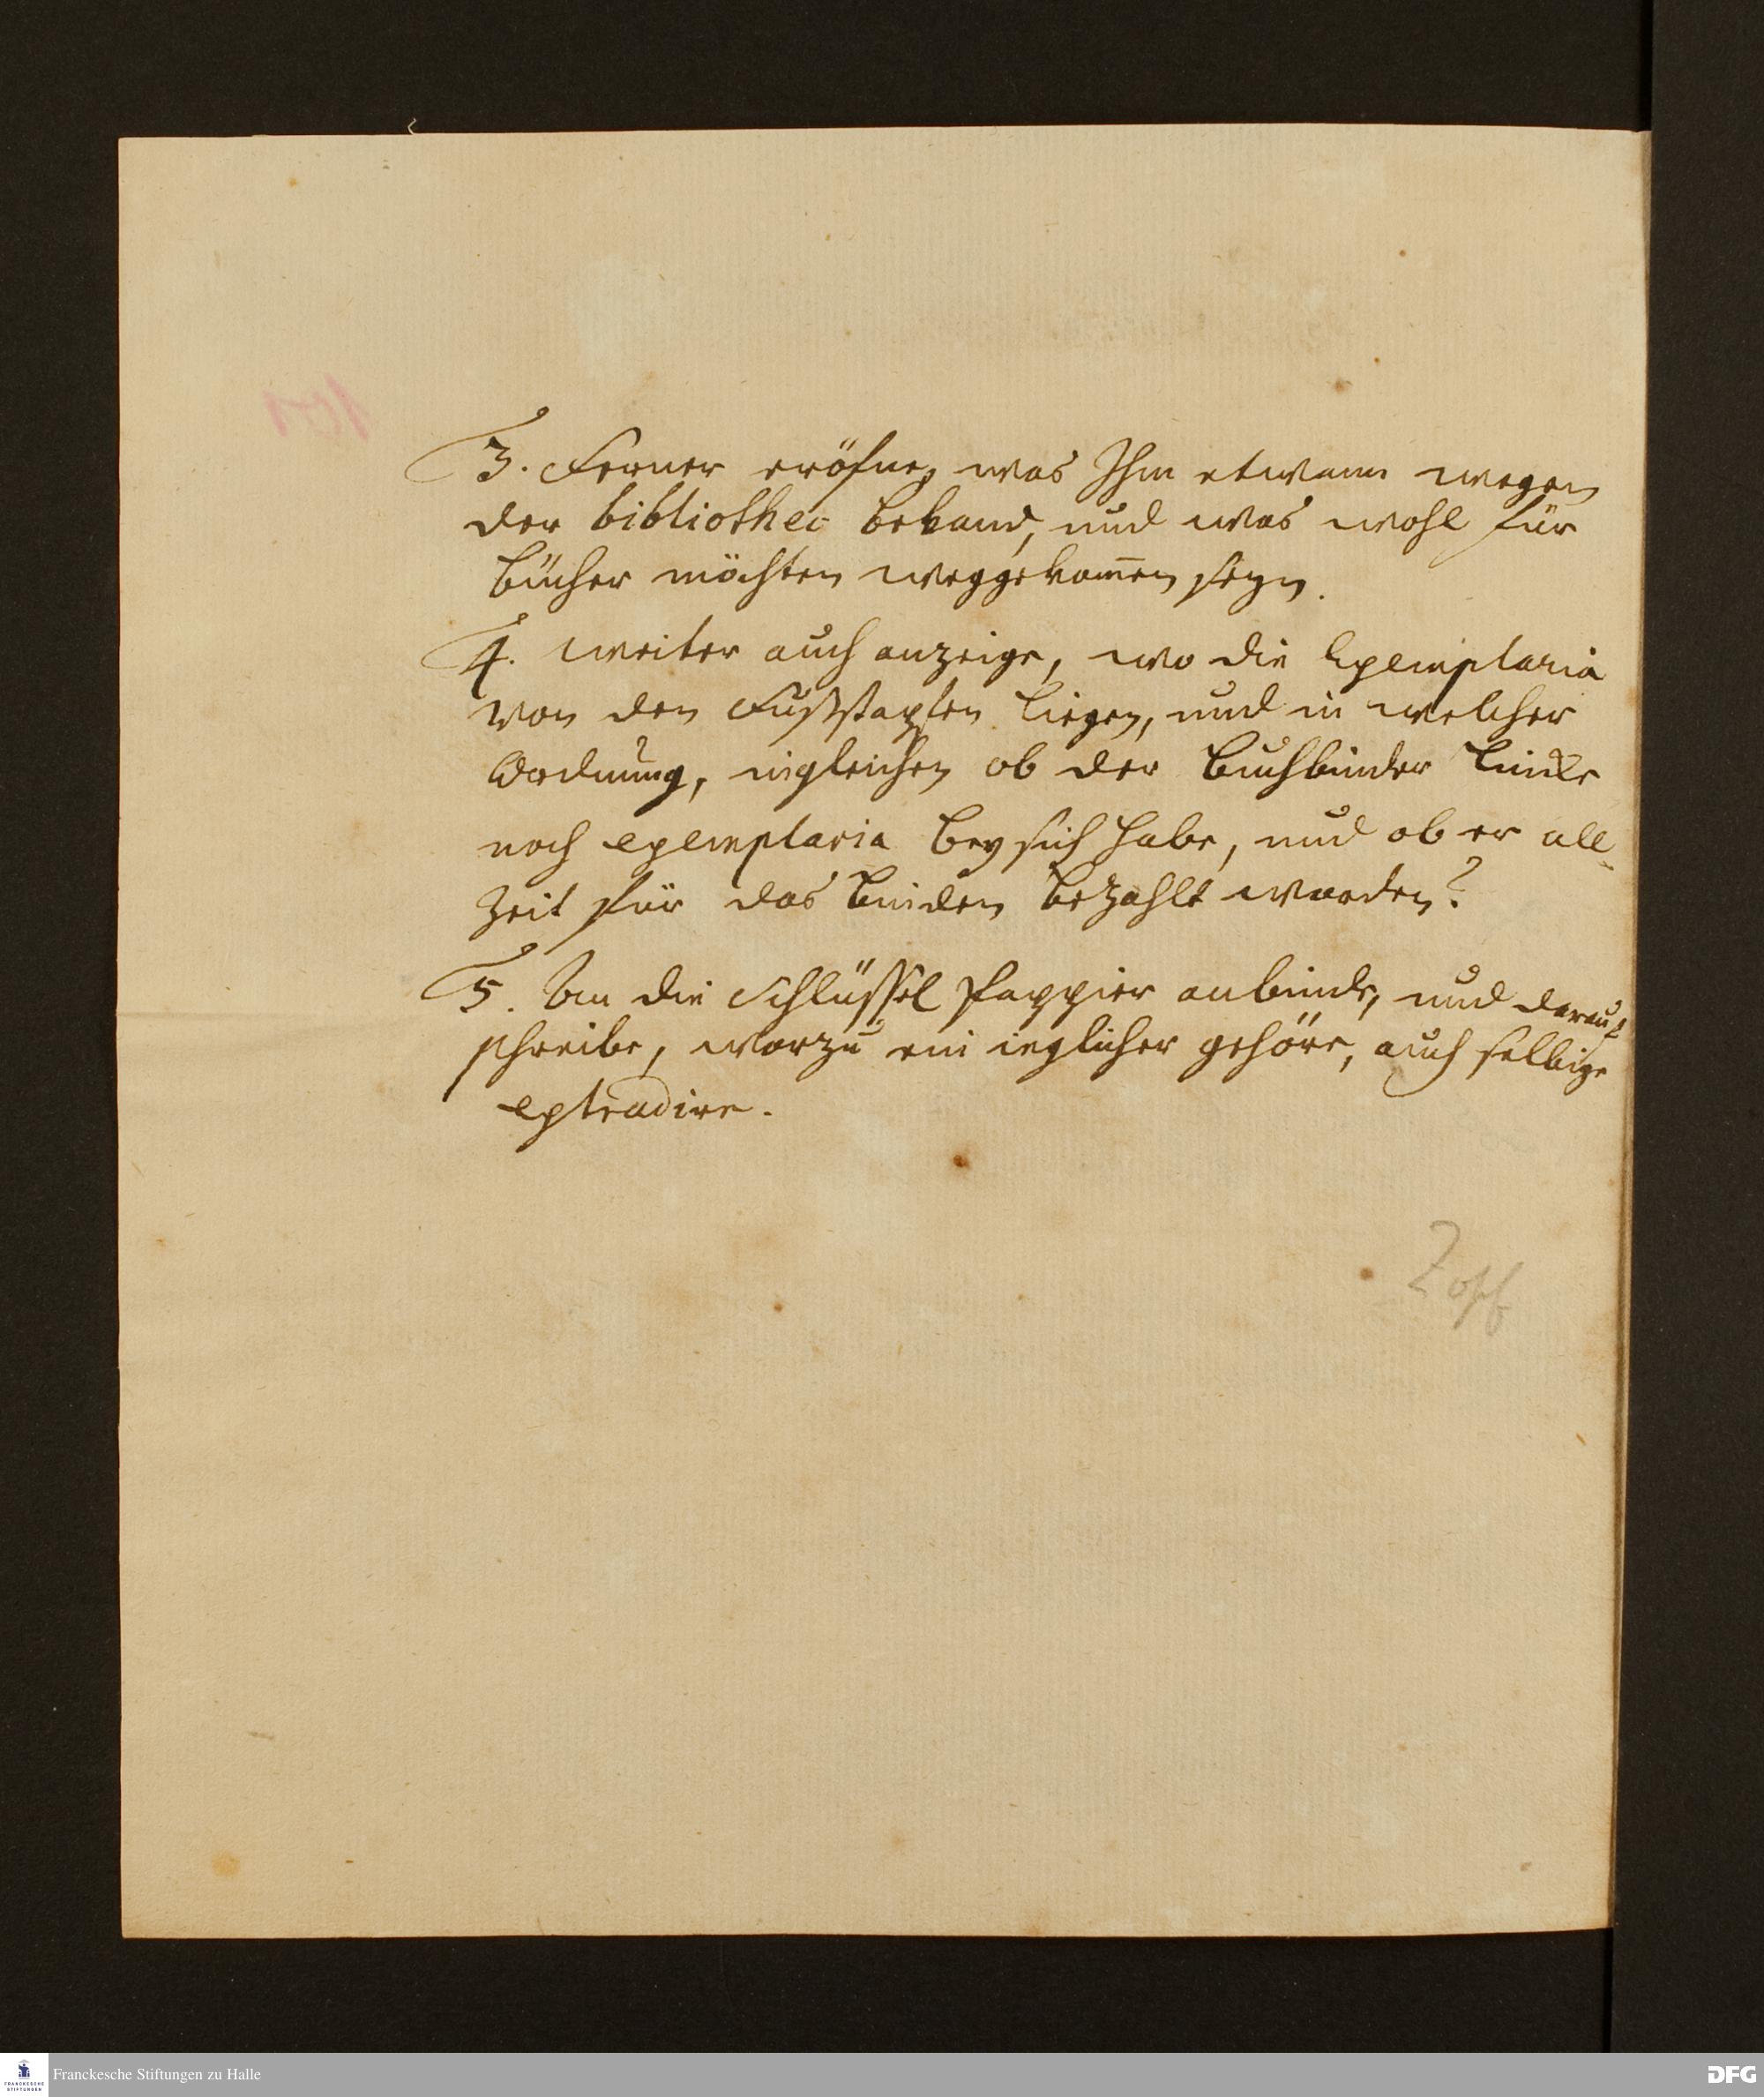 3. Ferner eröfne, was Ihm etwann wegen
der bibliothec bekand, und was wohl für
bücher möchten weggekom̅en seyn.
4. weiter auch anzeige, wo die Exemplaria
von den Fußstapfen liegen, und in welcher
Ordnung, ingleichen ob der buchbinder Lincke
noch exemplaria bey sich habe, und ob er all-
zeit für das binden bezahlt worden?
5. An die Schlüssel Pappier anbinde, und darauf
schreibe, worzu ein ieglicher gehöre, auch selbige
extradire.
Zopf
Franckesche Stiftungen zu Halle
FRANCKESCHE
STIFTUNGEN
DFG